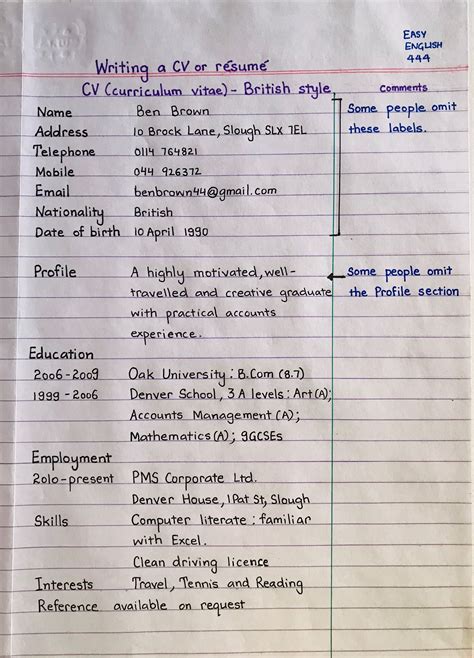 EASY
ENGLISH
444
Writing a CV or résumé
CV (curriculum vitae) - British style
comments
Name Ben Brown
Some people omit
Address 10 Brock Lane, Slough SLX 7EL
these labels.
Telephone 0114 764821
Mobile 044 926372
Email benbrown44@gmail.com
Nationality British
Date of birth 10 April 1990
Profile A highly motivated, well-
Some people omit
travelled and creative graduate
the Profile section
with practical accounts
experience.
Education
2006-2009 Oak University : B.Com (8.7)
1999-2006 Denver School, 3 A levels : Art(A);
Accounts Management (A);
Mathematics (A); 9GCSEs
Employment
2010-present PMS Corporate Ltd.
Denver House, 1 Pat St, Slough
Skills Computer literate : familiar
with Excel.
Clean driving licence
Interests Travel, Tennis and Reading
Reference available on request